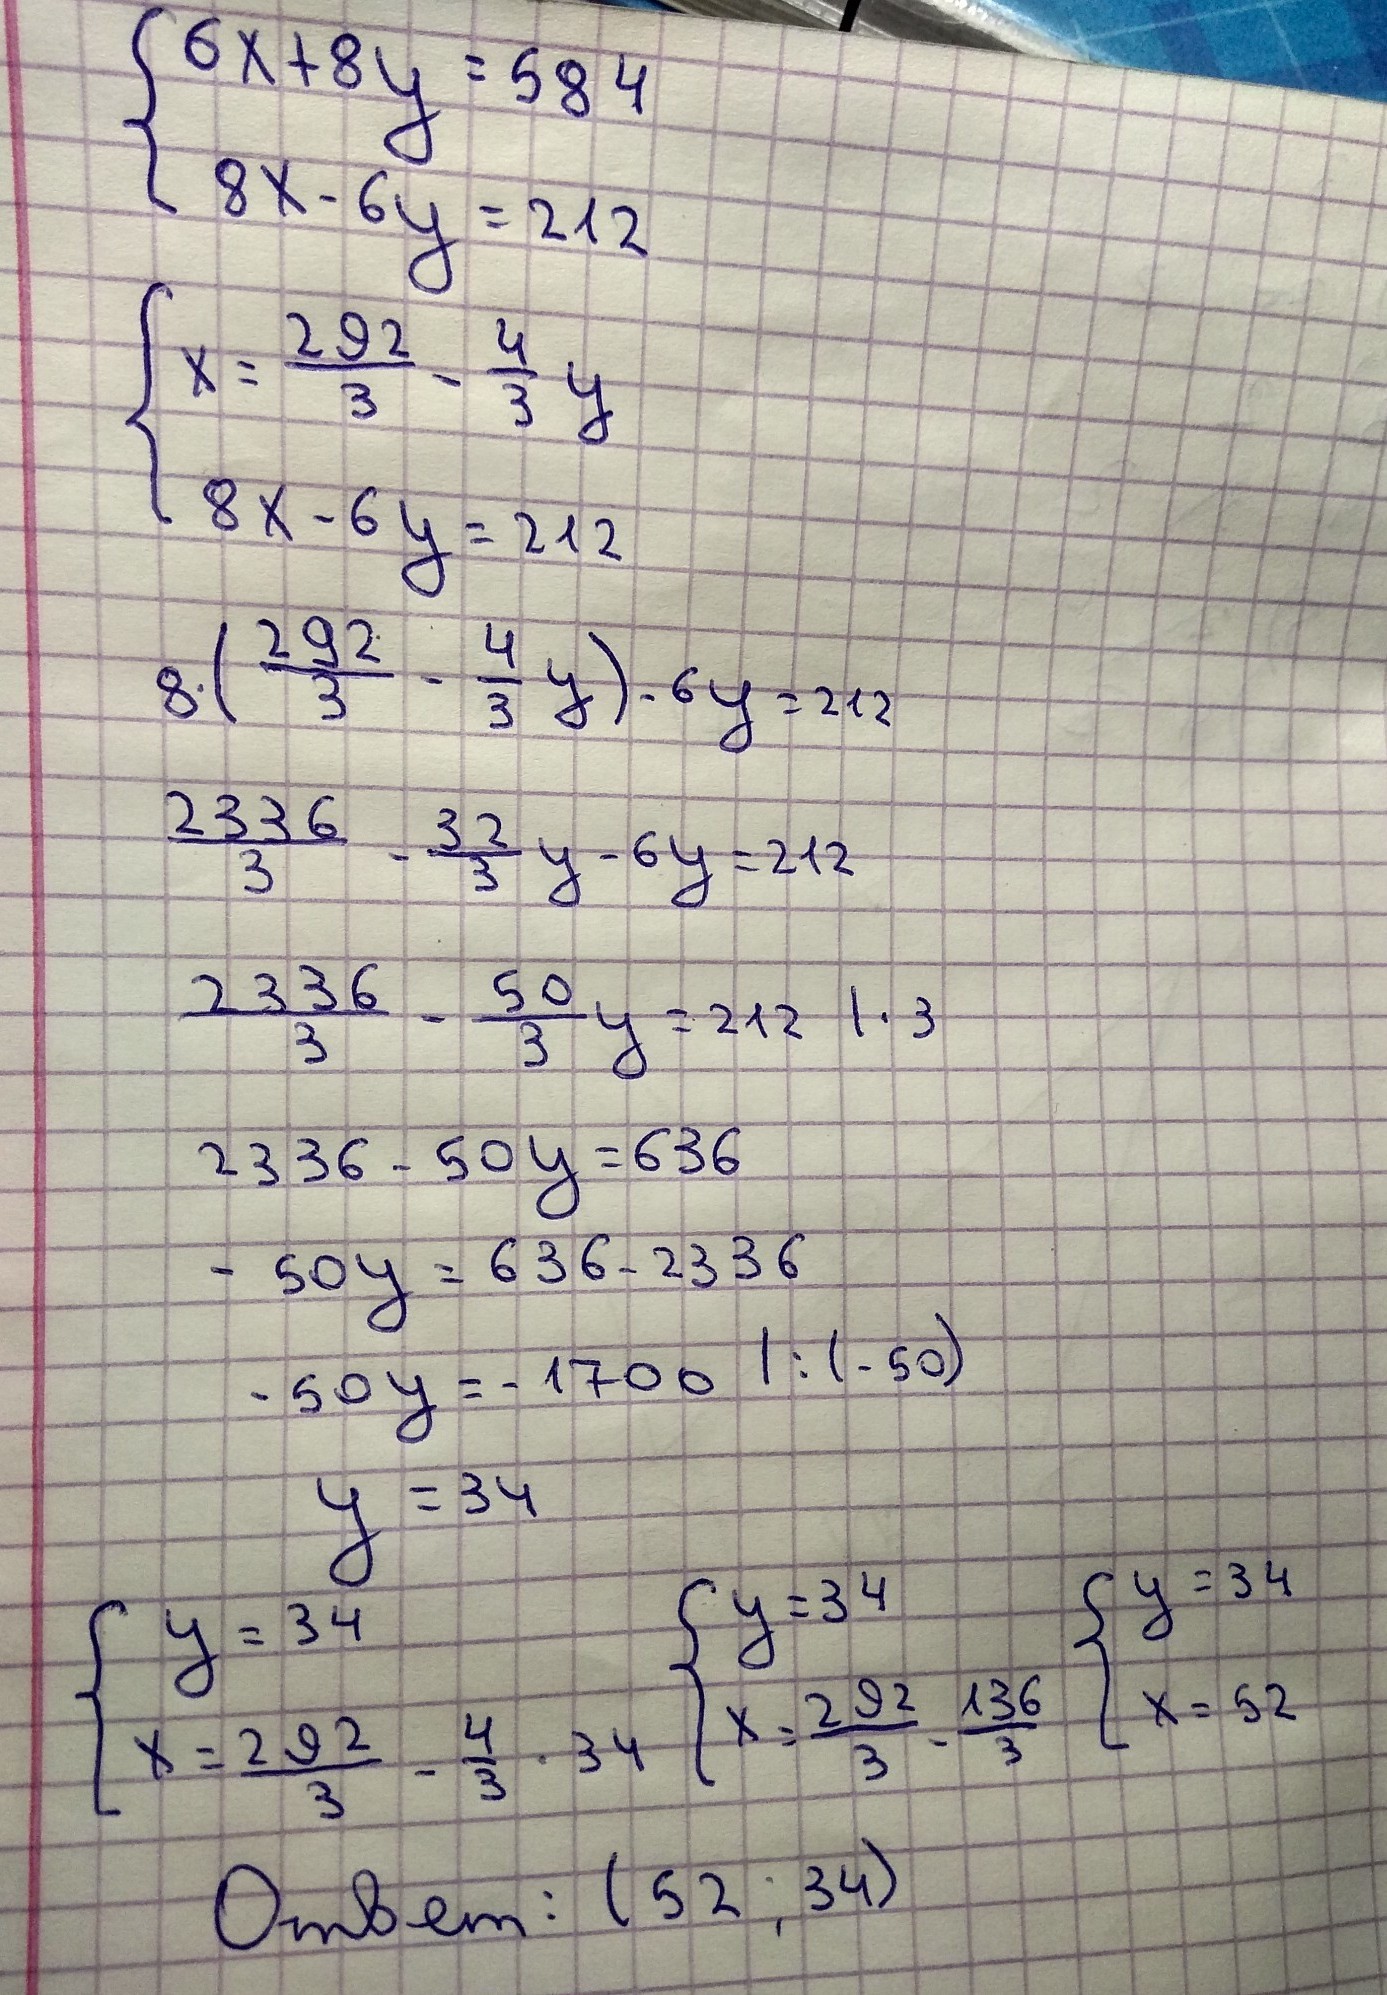 { 6x+8y=584
8x-6y=212
{ x= 292/3 - 4/3 y
8x-6y=212
8·(292/3 - 4/3 y)-6y=212
2336/3 - 32/3 y-6y=212
2336/3 - 50/3 y=212 |·3
2336-50y=636
-50y=636-2336
-50y=-1700 |:(-50)
y=34
{ y=34 { y=34 { y=34
x= 292/3 - 4/3 · 34 x= 292/3 - 136/3 x=52
Ответ: (52; 34)